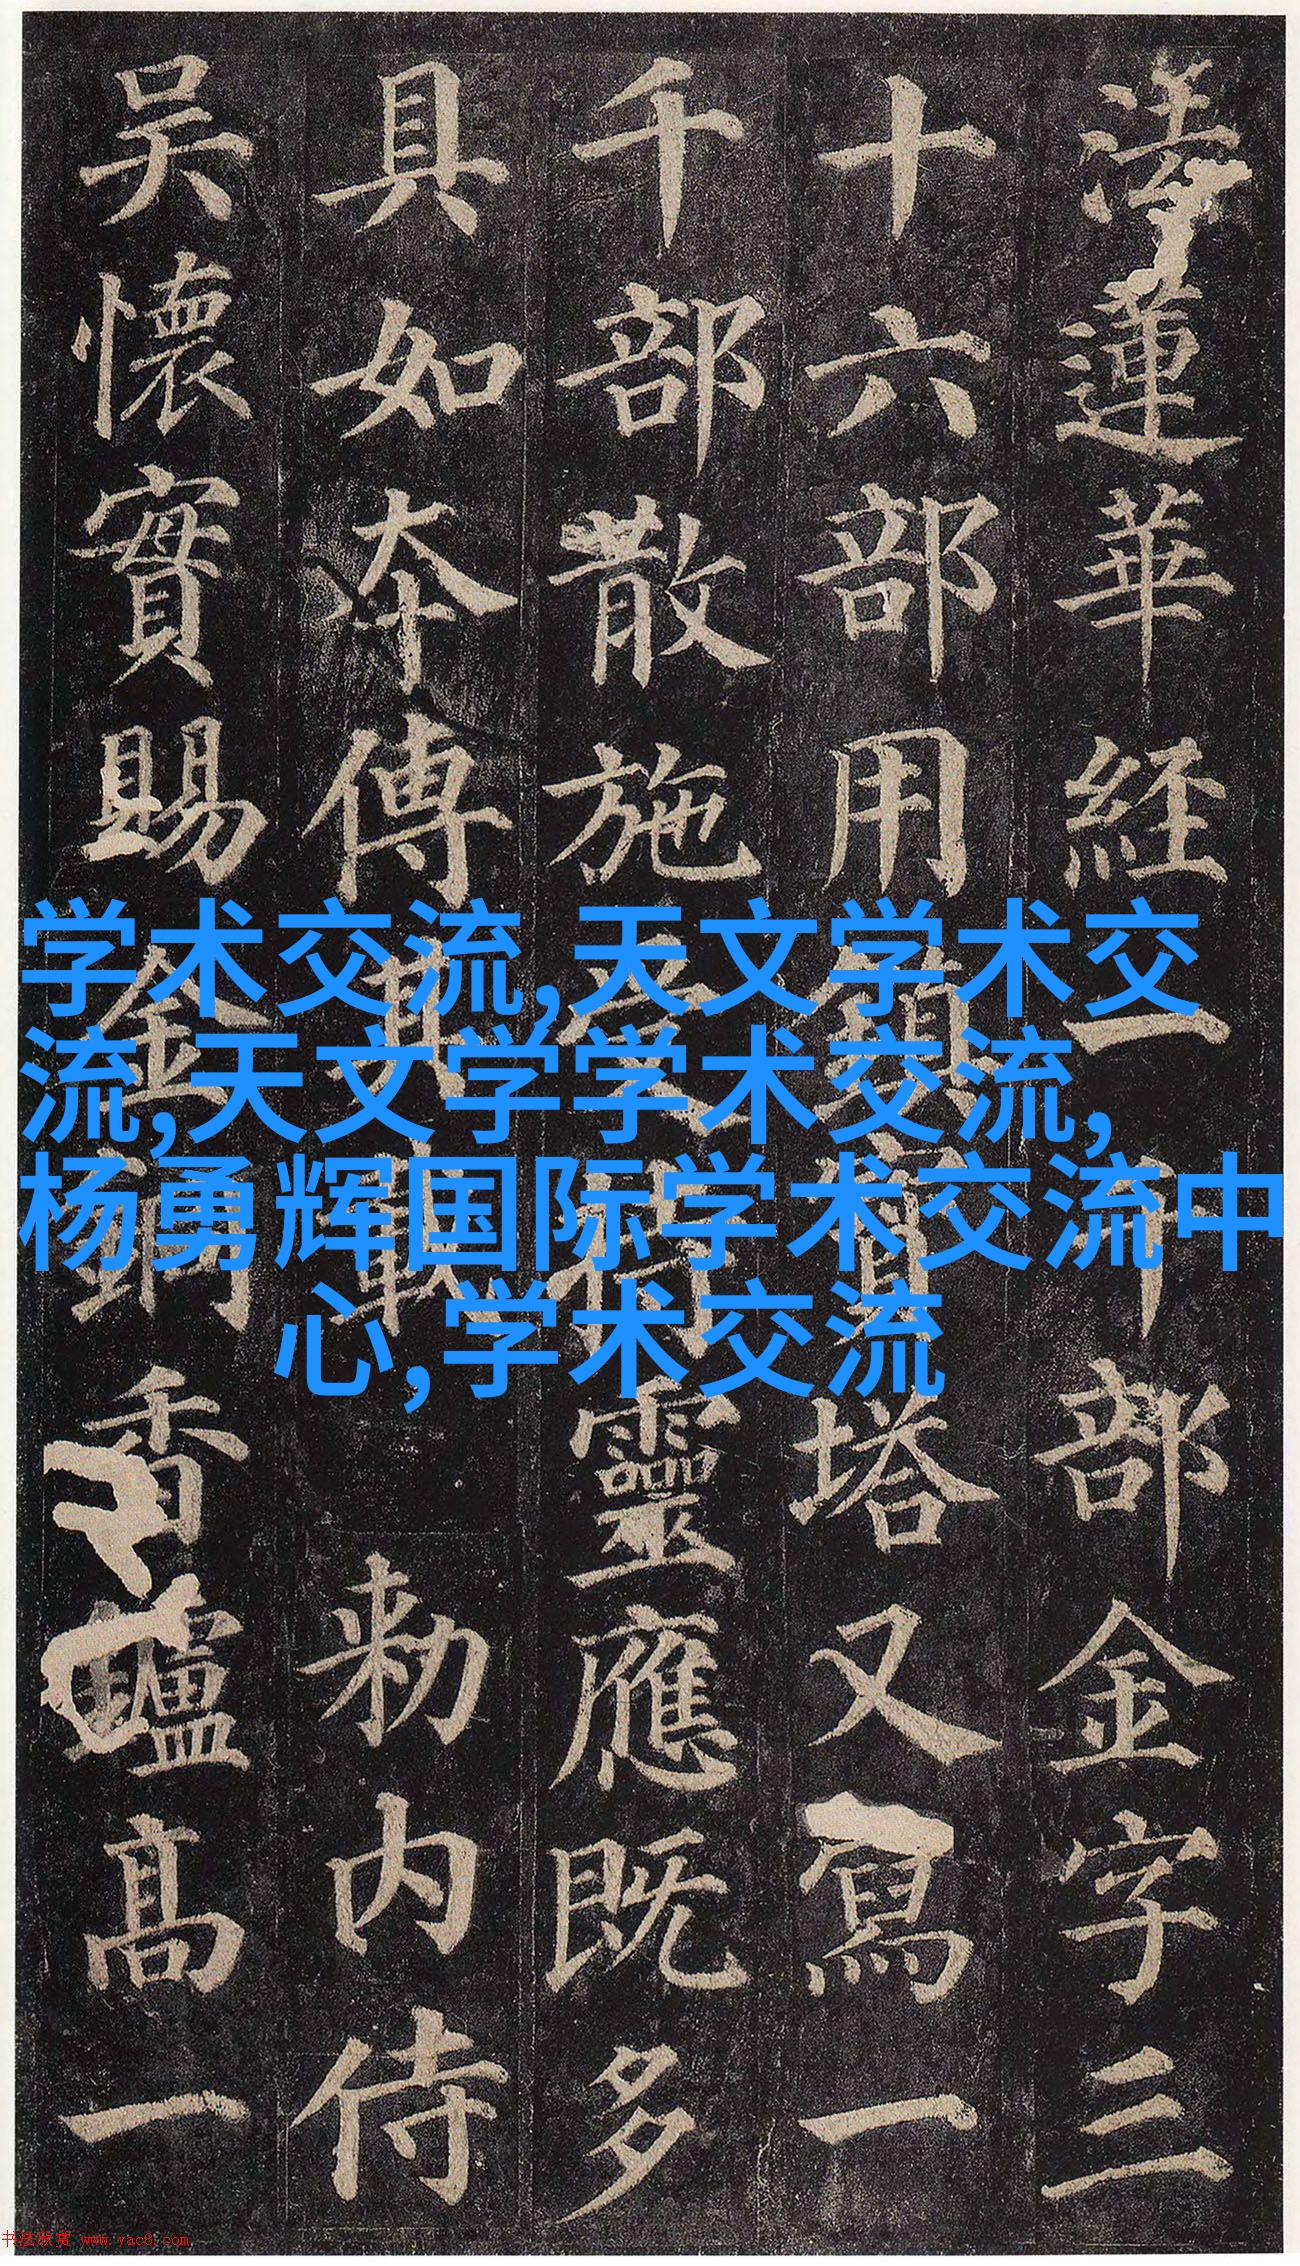 法蓮華經一千部金字三
十六部用鎮寶塔又寫一
千部散施受持靈應既多
具如本傳其載勅内侍
吴懷實賜金銅香鑪高一
学术交流,天文学术交
流,天文学学术交流,
杨勇辉国际学术交流中
心,学术交流
书法欣赏 www.yac8.com